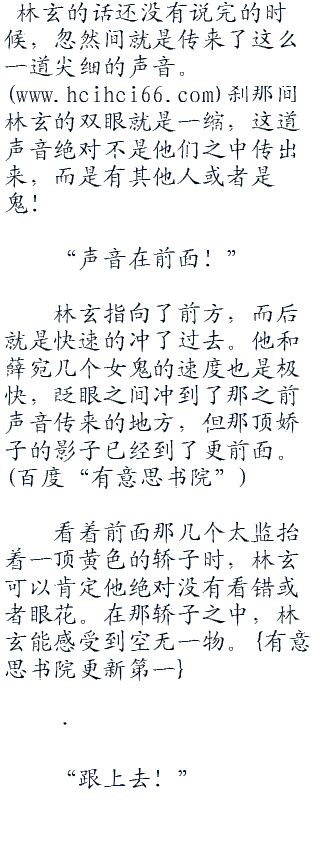 林玄的话还没有说完的时
候，忽然间就是传来了这么
一道尖细的声音。
(www.hcihci66.com)刹那间
林玄的双眼就是一缩，这道
声音绝对不是他们之中传出
来，而是有其他人或者是
鬼！
“声音在前面！”
林玄指向了前方，而后
就是快速的冲了过去。他和
薛宛几个女鬼的速度也是极
快，眨眼之间冲到了那之前
声音传来的地方，但那顶娇
子的影子已经到了更前面。
(百度“有意思书院”)
看着前面那几个太监抬
着一顶黄色的轿子时，林玄
可以肯定他绝对没有看错或
者眼花。在那轿子之中，林
玄能感受到空无一物。{有意
思书院更新第一}
.
“跟上去！”